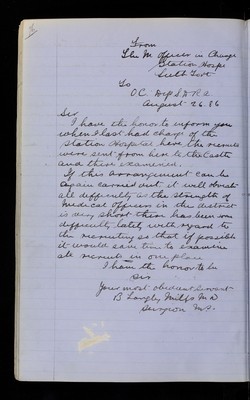 From
The M. Officer in Charge
Station Hosp
Fort
To
O.C. Dep S.W.R.A
August 26. 86
Sir
I have the honor to inform you
when I last had charge of the
Station Hospital here the recruits
were sent from here to the Castle
and there examined.
If this arrangement can be
again carried out it will obviate
all difficulty as the strength of
Medical Officers in the district
is very short there has been some
difficulty lately with regard to
the recruiting so that if possible
it would save time to examine
all recruits in one place
I have the honor to be
Sir
Your most obedient Servant
B Langley Mills M D
Surgeon M.S.